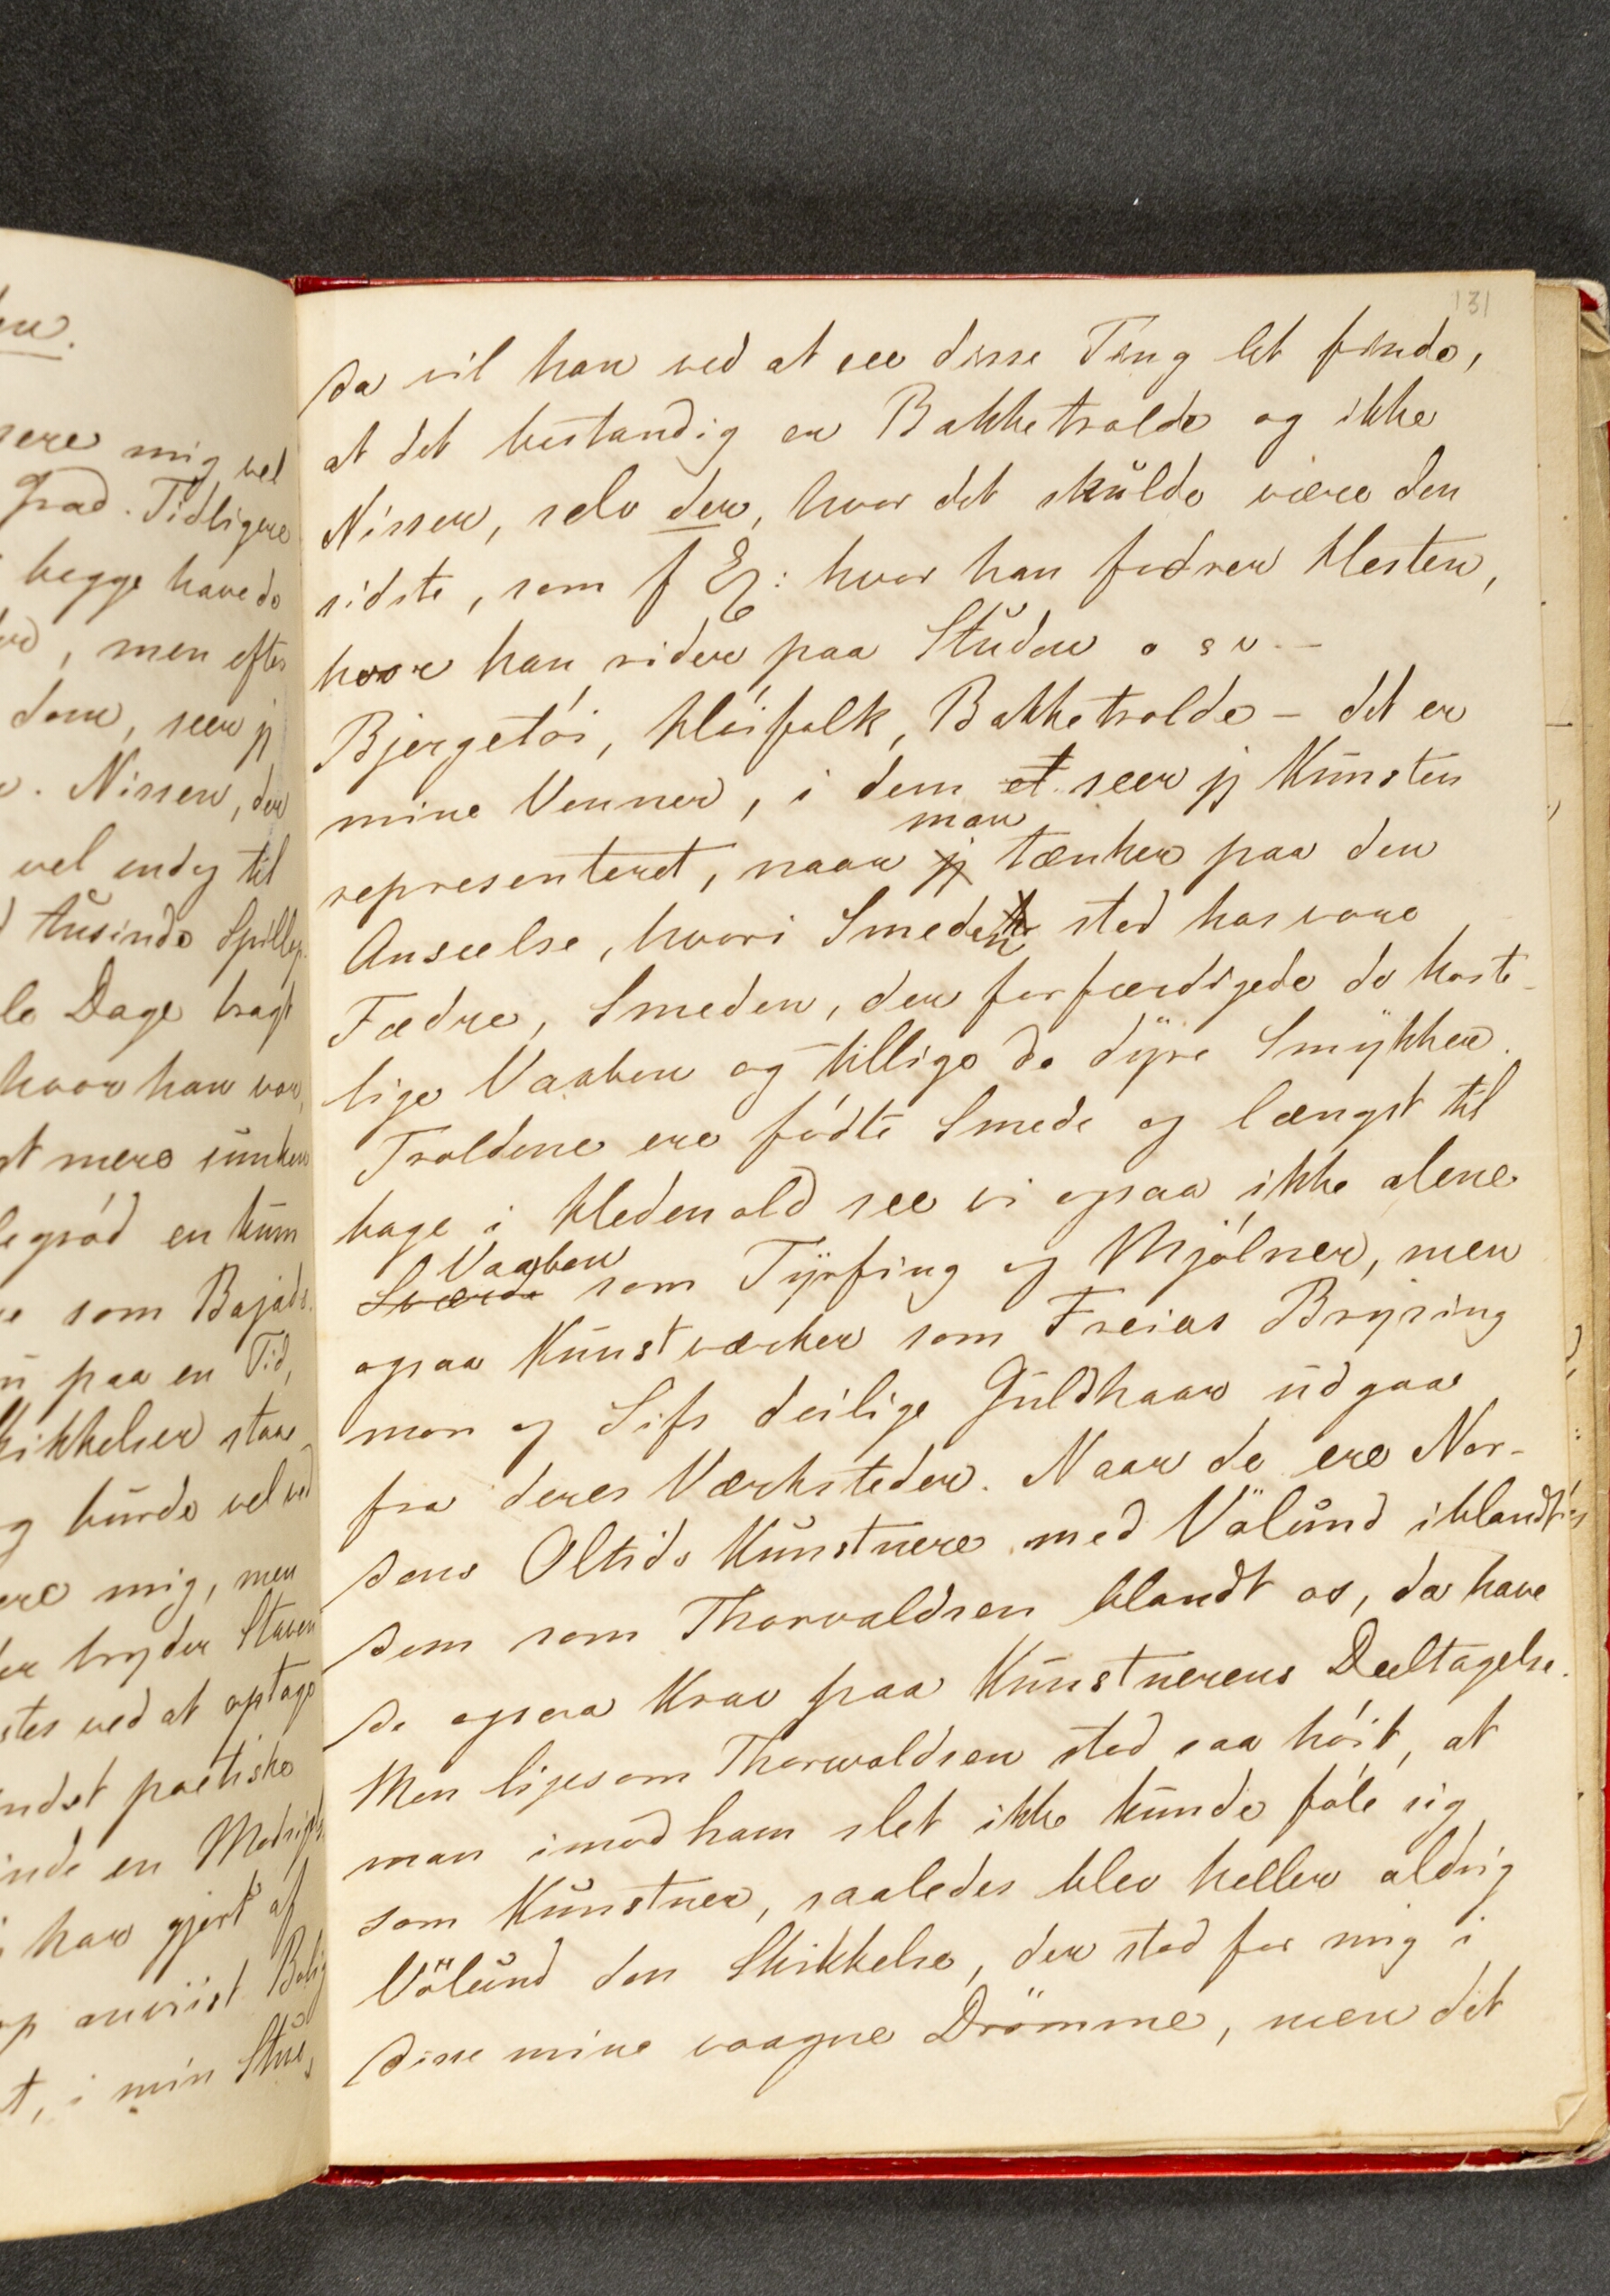 131
da vil han ved at see disse Ting let finde,
at det bestandig er Bakketrolde og ikke
Nisser, selv der, hvor det skulde være den
sidste, som f Ex: hvor han fodrer Hesten,
hvor han rider paa Studen o s v. –
Bjergetöi, Höifolk, Bakketrolde – det er
mine Venner, i dem et seer jg Kunsten
man
representeret, naar jg tænker paa den
Anseelse, hvori Smeden stod hos vore
Fædre, Smeden, der forfærdigede de kost-
lige Vaaben og tillige de dyre Smykker.
Troldene ere födte Smede og længst til
bage i Hedenold see vi ogsaa ikke alene
Vaaben
Sværde som Tyrfing og Mjölner, men
ogsaa Kunstværker som Freias Brysing
men og Sifs deilige Guldhaar udgaae
fra deres Værksteder. Naar de ere Nor-
dens Oltids Kunstnere med Völund iblandt
dem som Thorvaldsen blandt os, da have
de ogsaa Krav paa Kunstnerens Deeltagelse.
Men ligesom Thorvaldsen stod saa höit, at
man imod ham slet ikke kunde föle sig
som Kunstner, saaledes blev heller aldrig
Völund den Skikkelse, der stod for mig i
disse mine vaagne Drömme, men det
mig vel
Grad. Tidligere
begge havde
, men efter
dem, seer jg
. Nissen, der
vel endog til
tusinde
Dage bragt
hvor han var,
mere sunken
en kum
som Bajads
paa en Tid,
staae
burde vel ved
mig, men
bryder Staven
ved at optage
poetiske
en
har gjort af
anviist
, i min Stue,